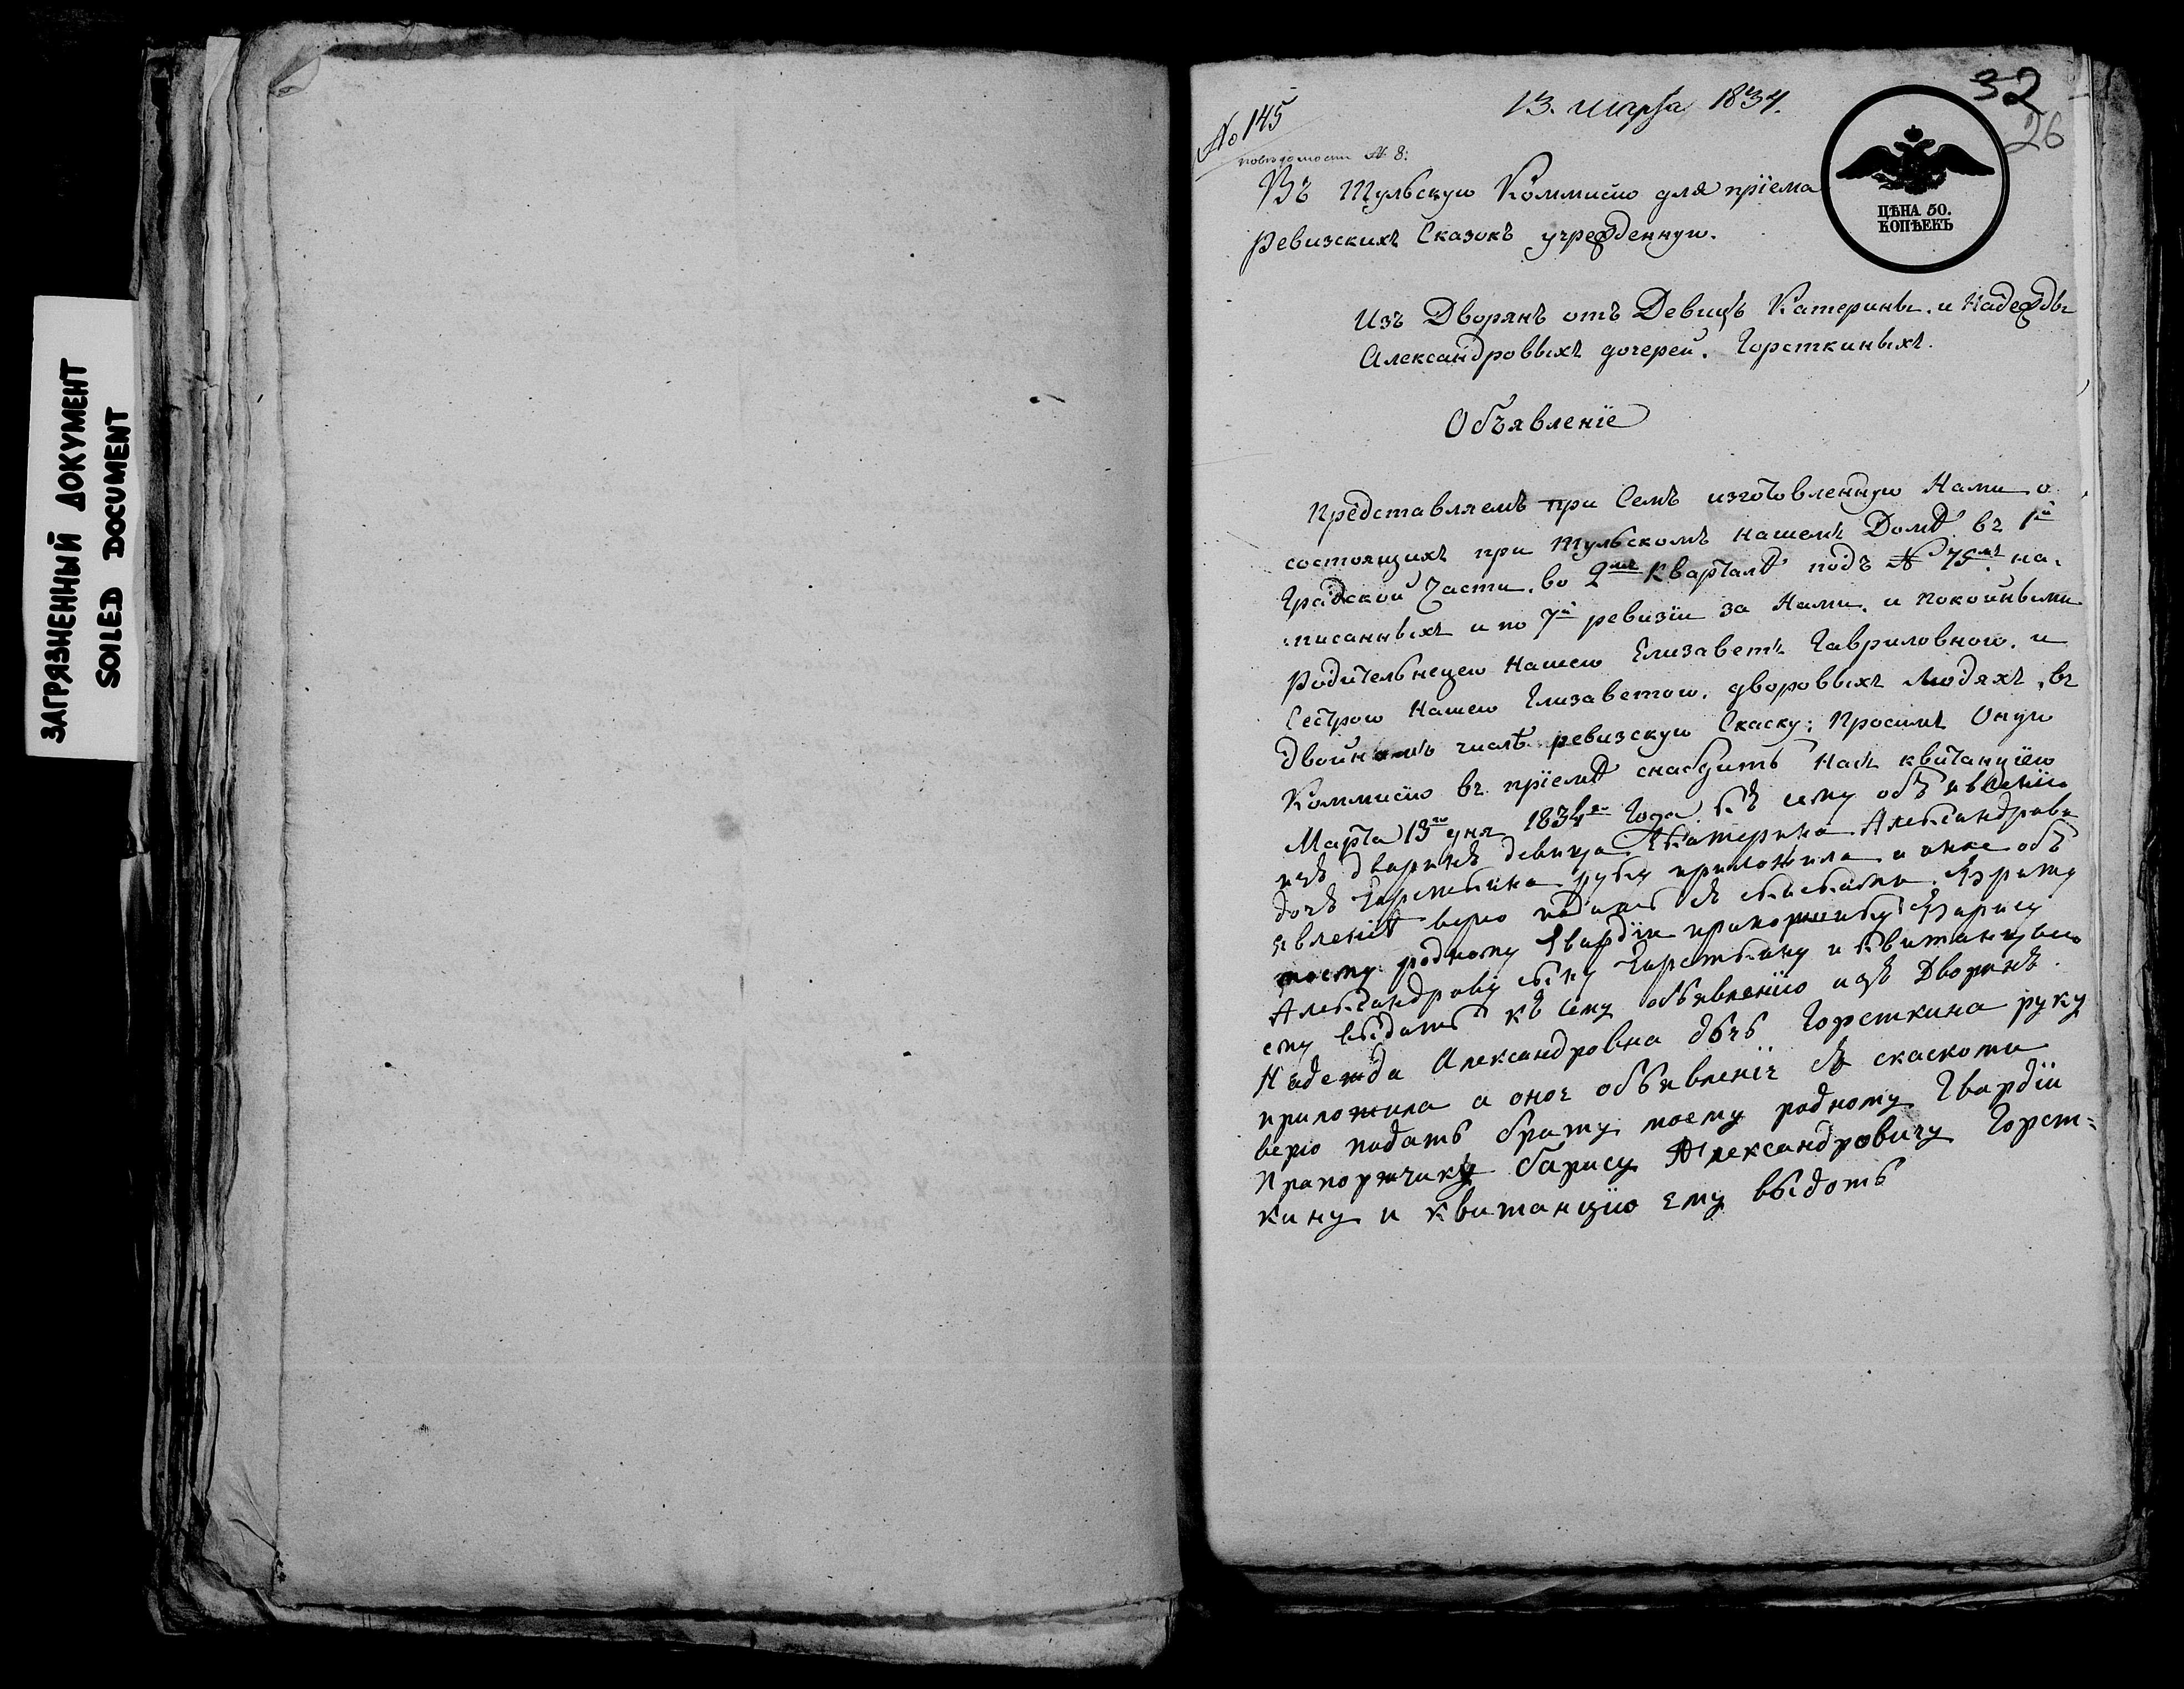 ЗАГРЯЗНЕННЫЙ ДОКУМЕНТ
SOILED DOCUMENT
№ 145
13. марта 1834.
32
26
по ведомости № 8:
ЦѢНА 50.
КОПѢЕКЪ
Въ Тульскую Коммисію для пріема
Ревизскихъ Сказокъ учрежденную.
Изъ Дворянъ отъ Девицъ Катерины. и Надежды
Александровыхъ дочерей. Горсткиныхъ.
Объявленіе
Представляемъ при Семъ изготовленную Нами о
состоящихъ при Тульскомъ нашемъ Домѣ въ 1й
Градской Части. во 2мъ Кварталѣ подъ № 75мъ на-
писанныхъ и по 7й ревизіи за Нами. и покойными
Родительницею Нашею Елизаветъ Гавриловною. и
Сестрою Нашею Елизаветою. дворовыхъ Людяхъ. въ
двойномъ числѣ ревизскую Скаску; Просимъ Оную
Коммисію въ пріемѣ снабдить Насъ квитанціею
Марта 13го дня 1834го Года. Къ сему объявленію
изъ дварянъ девица Екатерина Александрова
дочь Горсткина руку приложила и онае объ
явленіѣ верю подать съ скасками брату
моему родному Гвардіи прапорщику Барису
Александраву сыну Гарсткину и квитанцыю
ему выдать къ сему объявленію изъ Дворянъ.
Надежда Александровна дочь Горсткина руку
приложила а оное объявленіе съ скаскоми
верю подать брату моему родному Гвардіи
Прапорьчику барису Александровичу Горст=
кину и квитанцію ему выдоть